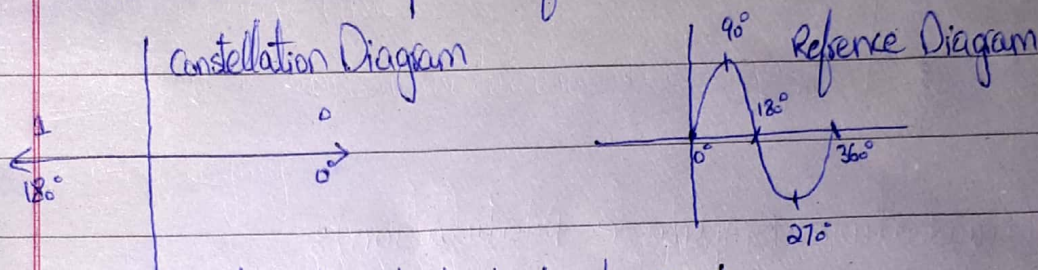 Constellation Diagram
1
0
180°
0°
Refrence Diagram
90°
180°
0°
360°
270°